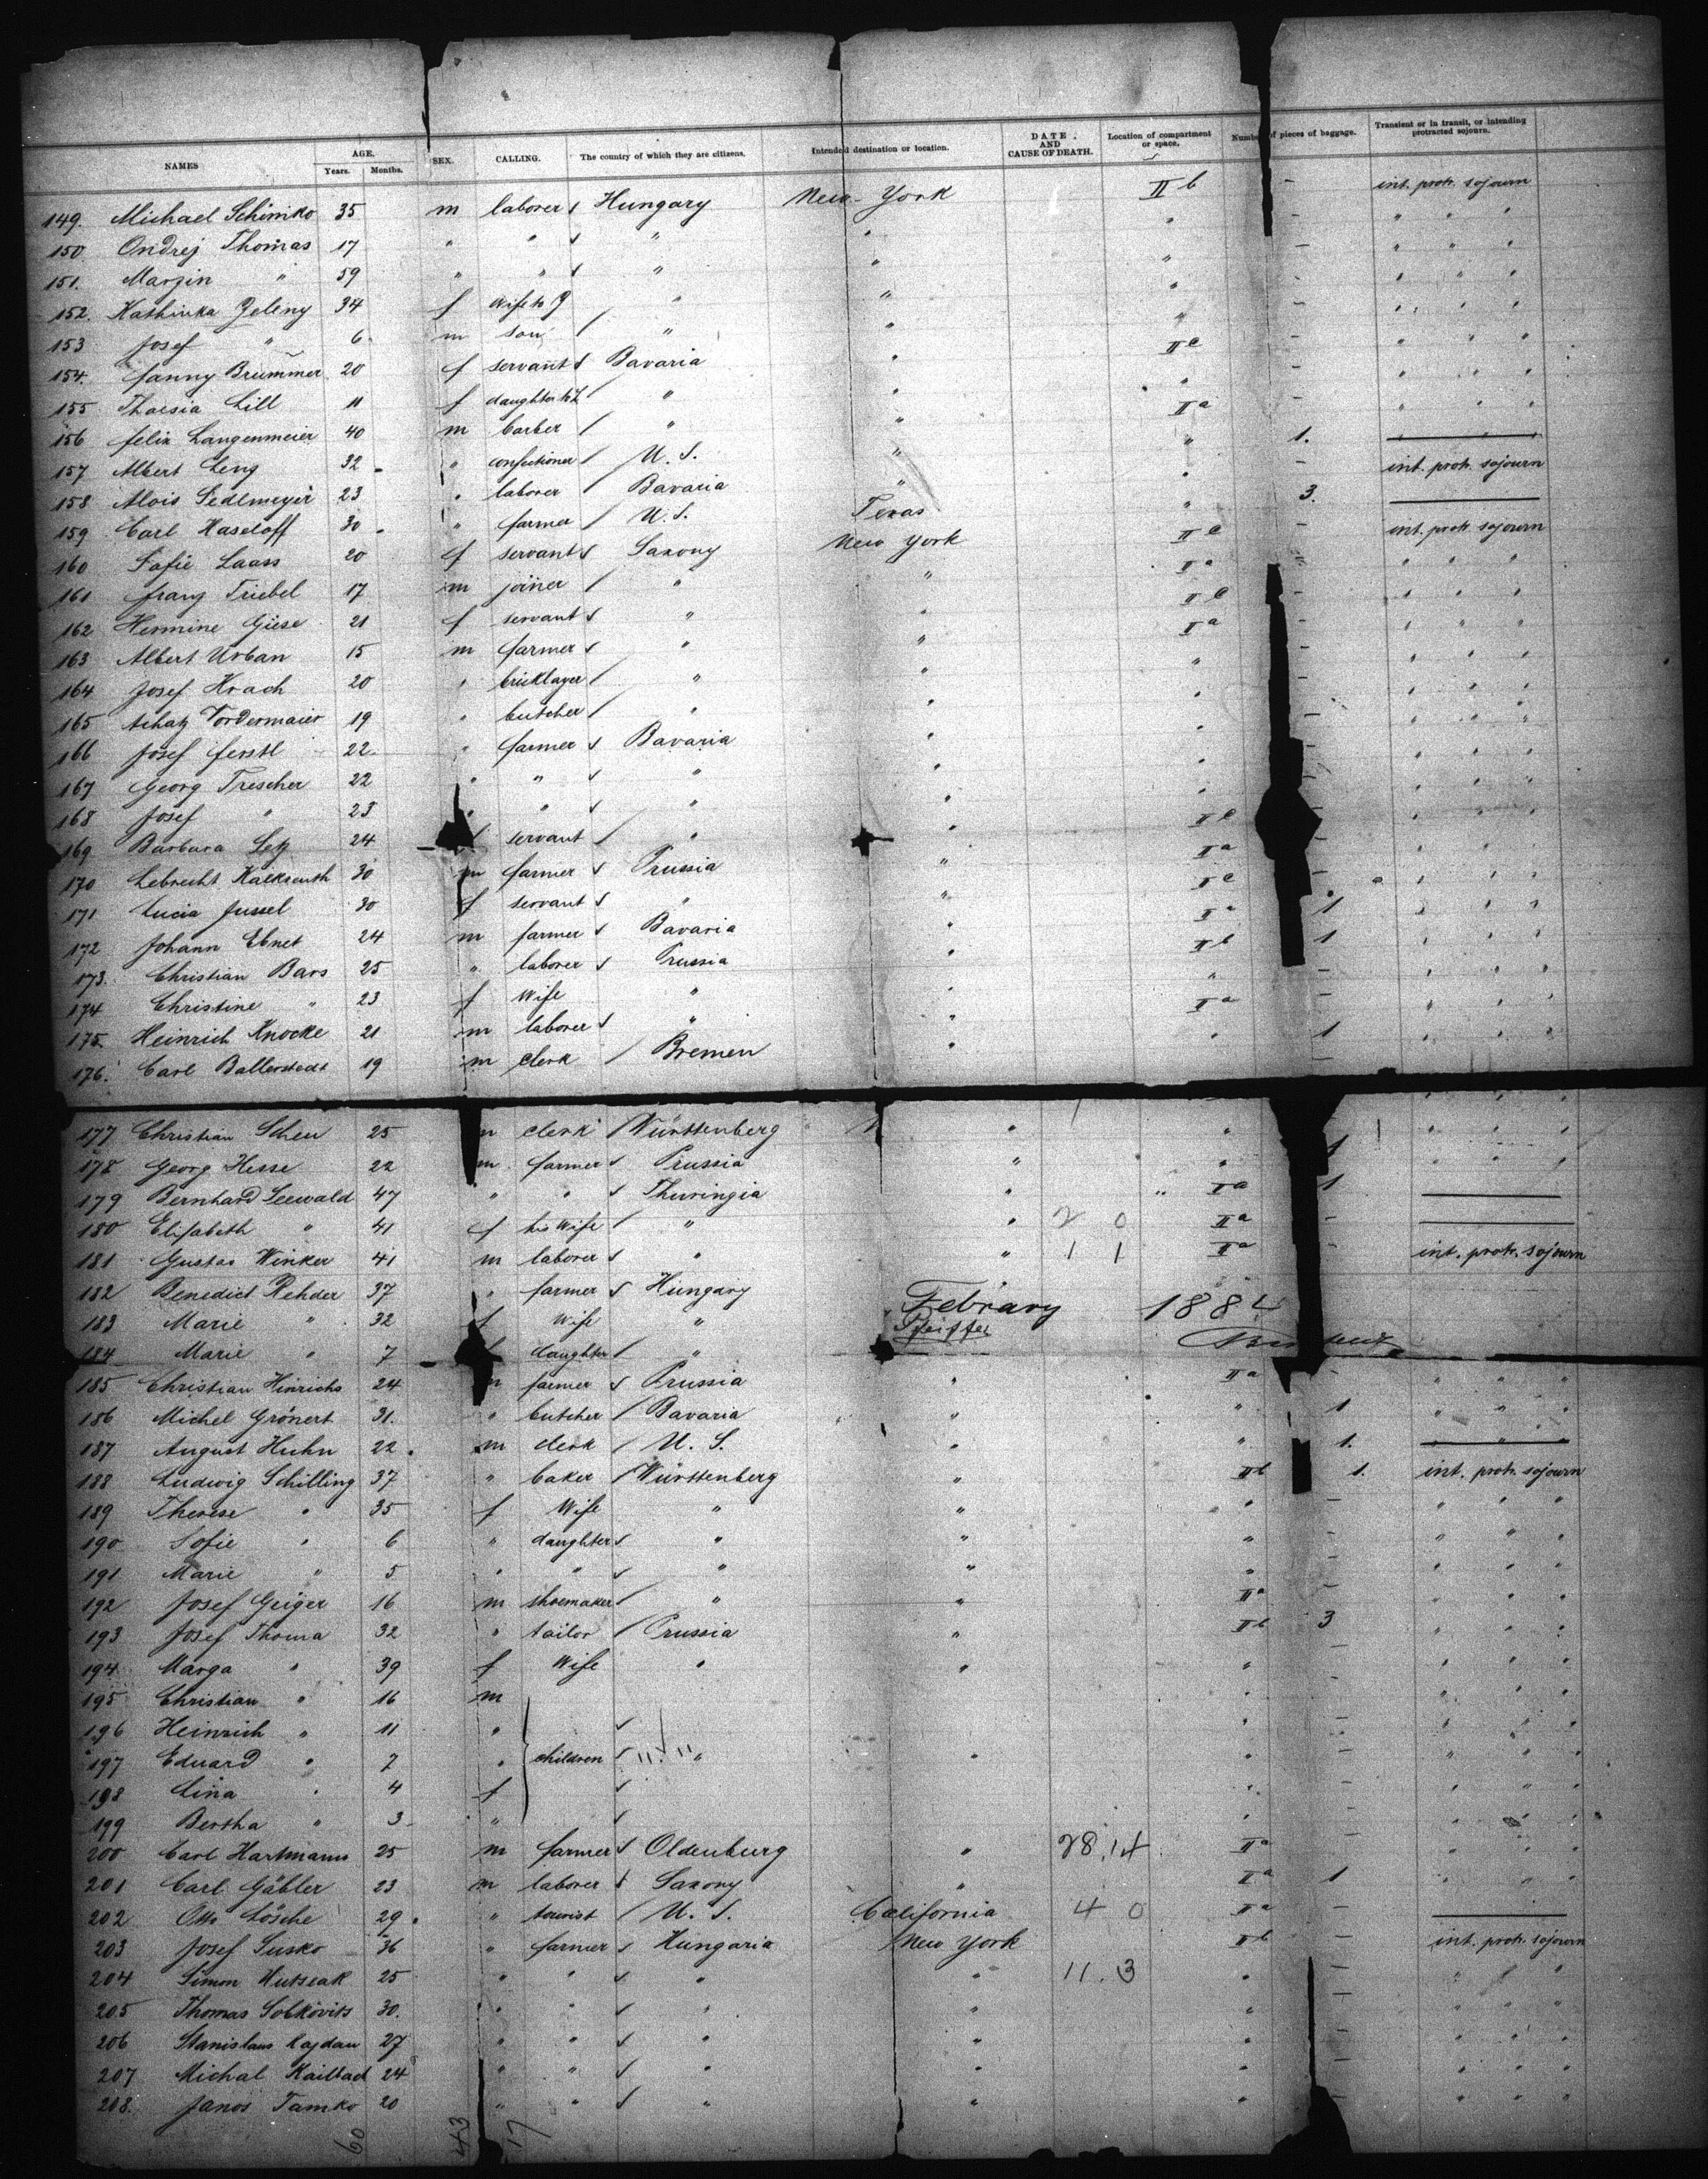 NAMES AGE. Years. Months. SEX. CALLING. The country of which they are citizens. Intended destination or location. DATE AND CAUSE OF DEATH. Location of compartment or space. Number of pieces of baggage. Transient or in transit, or intending protracted sojourn.
149. Michael Schimko 35 m laborer Hungary New-York II b - int. protr. sojourn
150. Ondrej Thomas 17 " " " " " - " " "
151. Marzin " 59 " " " " " - " " "
152. Kathinka Zeleny 34 f wife to " " " - " " "
153 Josef " 6 m son " " " - " " "
154. Fanny Brummer 20 f servant Bavaria " II c - " " "
155 Theresia Lill 11 f daughter to " " " - " " "
156 Felix Langenmeier 40 m barber " " II a - " " "
157 Albert Leng 32 " confectioner U. S. " " 1.
158 Alois Sedlmeyer 23 " laborer Bavaria " " - int. protr. sojourn
159 Carl Haseloff 30 " farmer U. S. Texas " 3.
160 Sofie Laass 20 f servant Saxony New York II c int. protr. sojourn
161 Franz Triebel 17 m joiner " " II a - " " "
162 Hermine Giese 21 f servant " " II c - " " "
163 Albert Urban 15 m farmer " " II a - " " "
164 Josef Hrach 20 " bricklayer " " " - " " "
165 Achatz Vordermaier 19 " butcher " " " - " " "
166 Josef Ferstl 22 " farmer Bavaria " " - " " "
167 Georg Trescher 22 " " " " " - " " "
168 Josef " 23 " " " " " - " " "
169 Barbara Setz 24 f servant " " II c - " " "
170 Lebrecht Kalkreuth 30 m farmer Prussia " II a - " " "
171 Lucia Jussel 30 f servant " " II c - " " "
172 Johann Ebnet 24 m farmer Bavaria " II a 1 " " "
173. Christian Bars 25 " laborer Prussia " II b 1 " " "
174 Christine " 23 f wife " " " - " " "
175. Heinrich Knocke 21 m laborer " " II a - " " "
176. Carl Ballerstedt 19 m clerk Bremen " " 1 " " "
177 Christian Scheu 25 m clerk Württenberg " " - " " "
178 Georg Hesse 22 m. farmer Prussia " " 1 " " "
179 Bernhard Seewald 47 " " Thuringia " II a 1
180 Elisabeth " 41 f his wife " " 2 0 II a -
181 Gustav Winker 41 m laborer " " 1 1 II a - int. protr. sojourn
182 Benedict Rehder 37 " farmer Hungary
183 Marie " 32 f wife " Febrary 1884
184 Marie " 7 f daughter " Pfeiffer
185 Christian Hinrichs 24 m farmer Prussia " II a - " " "
186 Michel Grönert 31. " butcher Bavaria " " 1 " " "
187 August Huhn 22 m clerk U. S. " " 1. " " "
188 Ludwig Schilling 37 " baker Württenberg " II b 1. int. protr. sojourn
189 Therese " 35 f wife " " " - " " "
190 Sofie " 6 " daughter " " " - " " "
191 Marie " 5 " " " " " - " " "
192 Josef Geiger 16 m shoemaker " " II a - " " "
193 Josef Thoma 32 " tailor Prussia " II b 3 " " "
194 Marga " 39 f wife " " " - " " "
195 Christian " 16 m " - " " "
196 Heinrich " 11 " " - " " "
197 Eduard " 7 " children " " " - " " "
198 Lina " 4 f " - " " "
199 Bertha " 3 " " - " " "
200 Carl Hartmann 25 m farmer Oldenburg " 28,14 II a - " " "
201 Carl Gäbler 23 m laborer Saxony " II a 1 " " "
202 Otto Lösche 29 " tourist U. S. California 4 0 II a -
203 Josef Susko 36 " farmer Hungaria New York II b - int. protr. sojourn
204 Simon Hutseak 25 " " " " 11.3 " - " " "
205 Thomas Sobkovits 30. " " " " " - " " "
206 Stanislaus Kajdan 27 " " " " " - " " "
207 Michal Kailbad 24 " " " " " - " " "
208. Janos Tamko 20 " " " " " - " " "
60 43 17